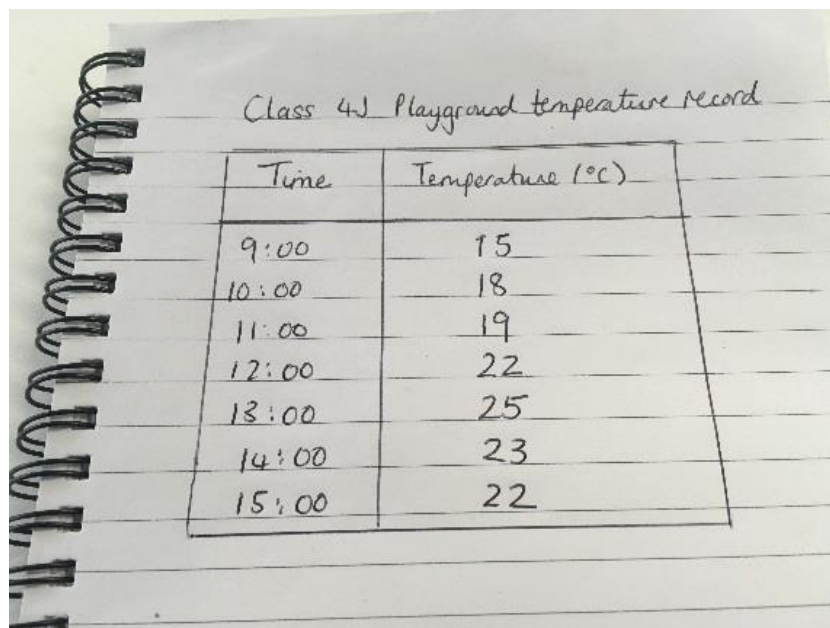 Class 4J Playground temperature record
Time Temperature (°C)
9:00 15
10:00 18
11:00 19
12:00 22
13:00 25
14:00 23
15:00 22